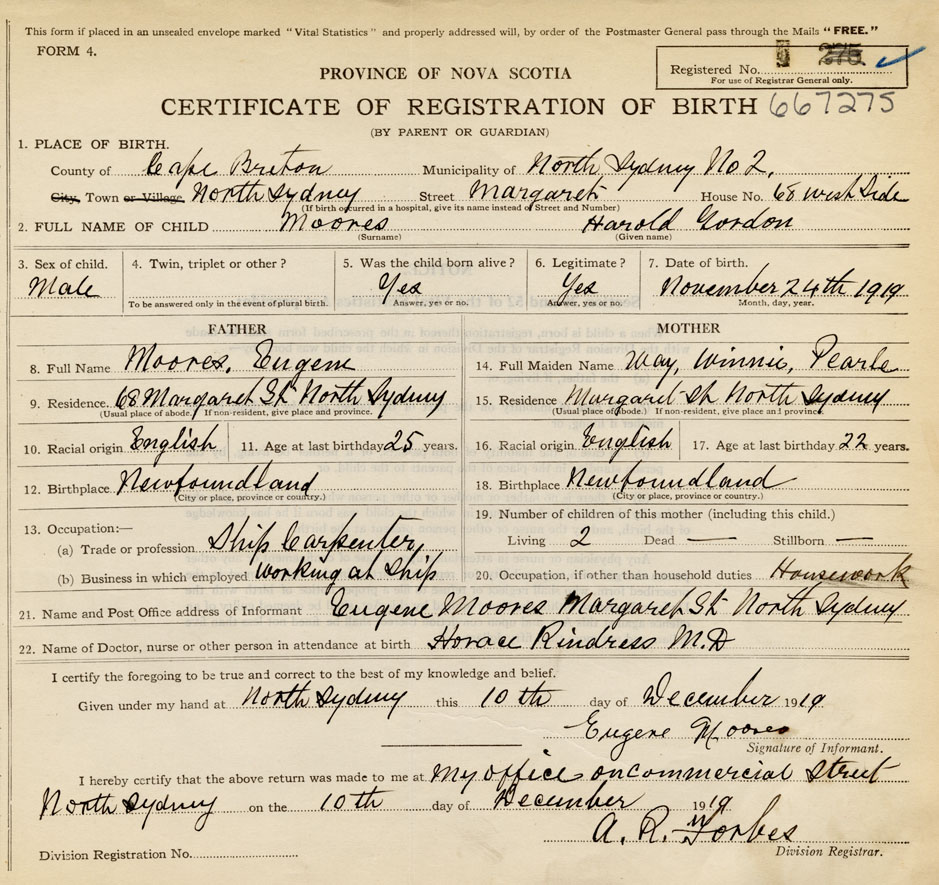 This form if placed in an unsealed envelope marked "Vital Statistics" and properly addressed will, by order of the Postmaster General pass through the Mails "FREE."
FORM 4.
275
Registered No.
For use of Registrar General only.
PROVINCE OF NOVA SCOTIA
CERTIFICATE OF REGISTRATION OF BIRTH 667275
(BY PARENT OR GUARDIAN)
1. PLACE OF BIRTH.
County of Cape Breton Municipality of North Sydney No 2,
City, Town or Village North Sydney Street Margaret House No. 68 west Side
(If birth occurred in a hospital, give its name instead of Street and Number)
2. FULL NAME OF CHILD Moores Harold Gordon
(Surname) (Given name)
3. Sex of child. 4. Twin, triplet or other? 5. Was the child born alive? 6. Legitimate? 7. Date of birth.
Male Yes Yes November 24th 1919
To be answered only in the event of plural birth. Answer, yes or no. Answer, yes or no. Month, day, year.
FATHER MOTHER
8. Full Name Moores, Eugene 14. Full Maiden Name Way, Winnie, Pearle
9. Residence. 68 Margaret St North Sydney 15. Residence Margaret St North Sydney
(Usual place of abode. If non-resident, give place and province.) (Usual place of abode.) If non-resident, give place and province.
10. Racial origin English 11. Age at last birthday 25 years. 16. Racial origin English 17. Age at last birthday 22 years.
12. Birthplace Newfoundland 18. Birthplace Newfoundland
(City or place, province or country.) (City or place, province or country.)
13. Occupation:— 19. Number of children of this mother (including this child.)
(a) Trade or profession Ship Carpenter, Living 2 Dead — Stillborn —
(b) Business in which employed working at Ship 20. Occupation, if other than household duties Housework
21. Name and Post Office address of Informant Eugene Moores Margaret St North Sydney
22. Name of Doctor, nurse or other person in attendance at birth Horace Rindress M.D
I certify the foregoing to be true and correct to the best of my knowledge and belief.
Given under my hand at North Sydney this 10th day of December 1919
Eugene Moores
Signature of Informant.
I hereby certify that the above return was made to me at My office on commercial Street
North Sydney on the 10th day of December 1919
A. R. Forbes
Division Registration No. Division Registrar.